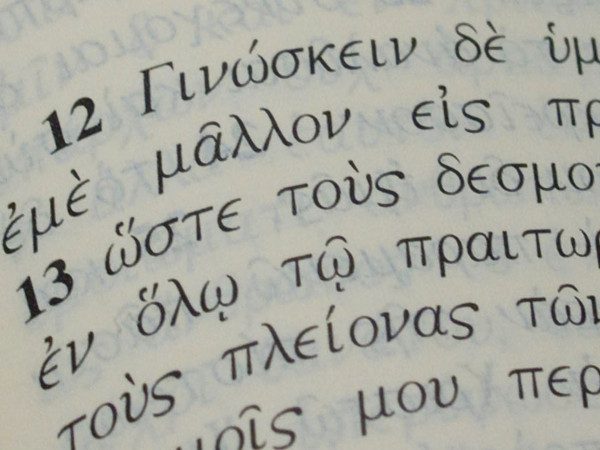 12 Γινώσκειν δὲ ὑμ
ἐμὲ μᾶλλον εἰς πρ
13 ὥστε τοὺς δεσμο
ἐν ὅλῳ τῷ πραιτωρ
τοὺς πλείονας τῶν
μοῖς μου περ